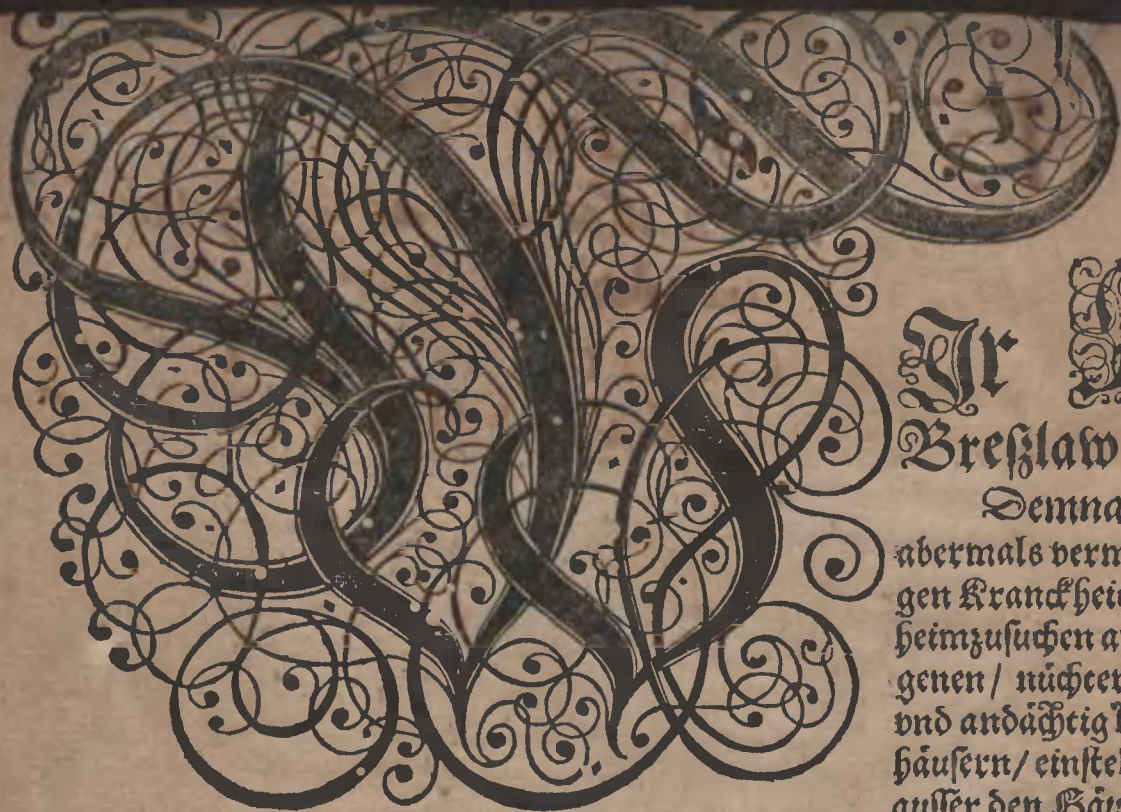 WIr
Breßlaw
Demna
abermals verm
gen Kranckhei
heimzusuchen a
genen / nüchter
vnd andächtig
häusern / einste
ausser den Häu